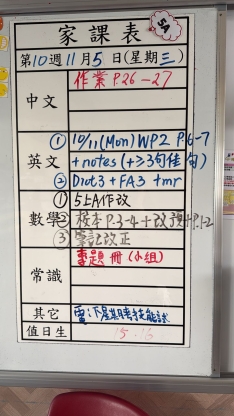 家課表
5A
第10週11月5日(星期三)
中文
作業 P.26-27
英文
① 10/11(Mon) WP2 P.6-7
+notes (+≥3句佳句)
② Dict3 + FA3 + mr
數學
① 5上A作改
② 校本P.3-4+改預
③ 筆記改正
常識
專題冊(小組)
其它
電:下星期考技能試
值日生
15. 16